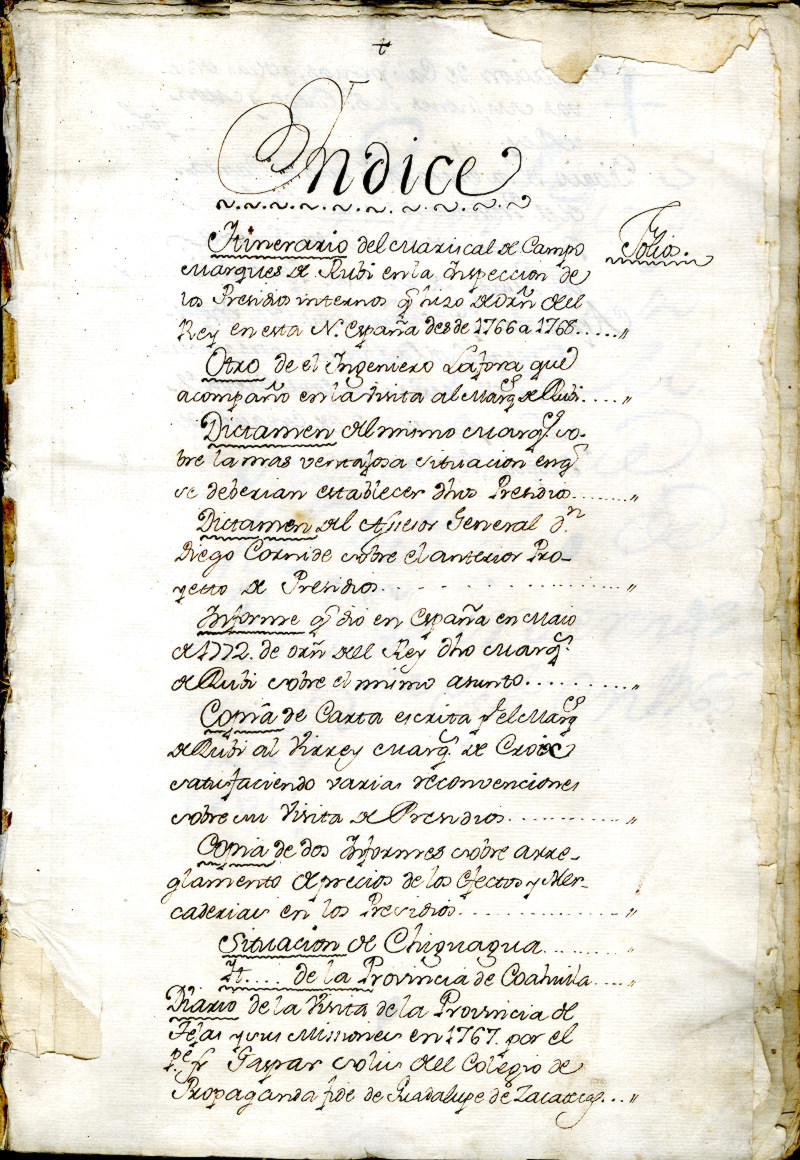 Yndice
Folios.
Itinerario del Mariscal de Campo
Marques de Rubi en la Ynspeccion de
los Presidios internos q̃ hizo de Orñ del
Rey en esta N. España desde 1766 a 1768..... "
Otro de el Yngeniero Lafora que
acompaño en la Visita al Marqs de Rubi..... "
Dictamen del mismo Marqs. so-
bre la mas ventajosa situacion en q̃
se deberian establecer dhos Presidios......... "
Dictamen del Assesor General dn.
Diego Cornide sobre el anterior Pro-
yecto de Presidios................ "
Informe q̃ dio en España en Maio
de 1772. de orñ del Rey dho Marqs.
de Rubi sobre el mismo asunto........... "
Copia de Carta escrita pr el Marqs
de Rubi al Virrey Marqs. de Croix
satisfaciendo varias reconvenciones
sobre su Visita de Presidios............. "
Copia de dos Ynformes sobre arre-
glamento de precios de los efectos y Mer-
caderias en los Presidios................. "
Situacion de Chiguagua......... "
It.... de la Provincia de Coahuila.... "
Diario de la Visita de la Provincia de
Tejas y sus Missiones en 1767. por el
Pe. fr Gaspar Solis del Colegio de
Propaganda fide de Guadalupe de Zacatecas... "